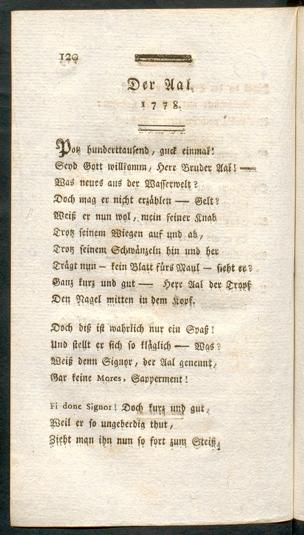 120
Der Aal.
1778.
Potz hunderttausend, guck einmal!
Seyd Gott willkomm, Herr Bruder Aal! —
Was neues aus der Wasserwelt?
Doch mag er nicht erzählen — Gelt?
Weiß er nun wol, mein feiner Knab
Trotz seinem Wiegen auf und ab,
Trotz seinem Schwänzeln hin und her
Trägt nun — kein Blatt fürs Maul — sieht er?
Ganz kurz und gut — Herr Aal der Tropf
Den Nagel mitten in dem Kopf.
Doch diß ist wahrlich nur ein Spaß!
Und stellt er sich so kläglich — Was?
Weiß denn Signor, der Aal genennt,
Gar keine Mores, Sapperment!
Fi donc Signor! Doch kurz und gut,
Weil er so ungeberdig thut,
Zieht man ihn nun so fort zum Steiß,